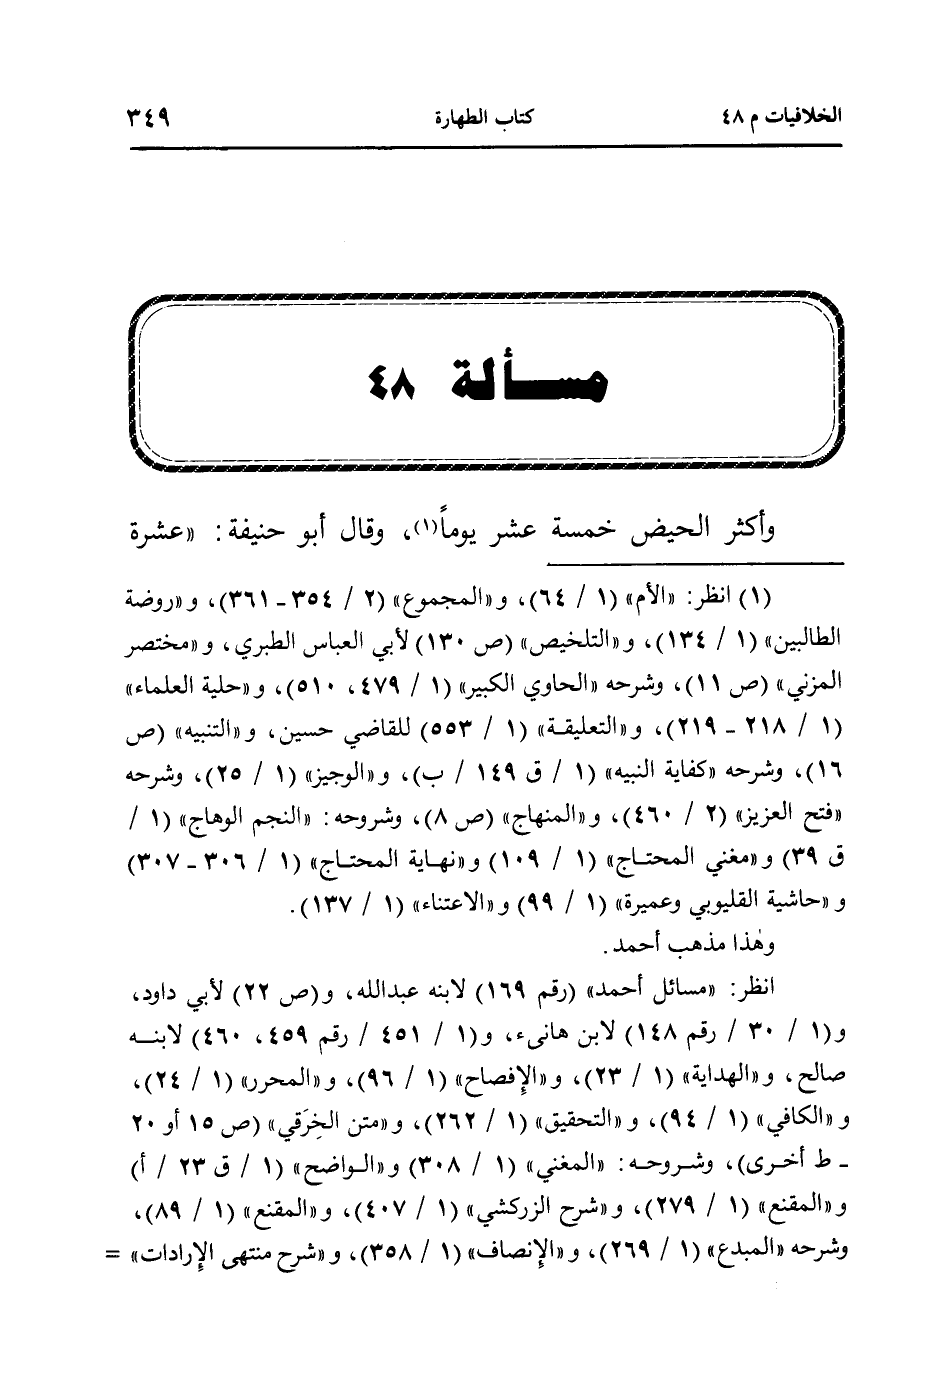 الخلافيات م ٤٨ كتاب الطهارة ٣٤٩
مسألة ٤٨
وأكثر الحيض خمسة عشر يوماً(١)، وقال أبو حنيفة: «عشرة
(١) انظر: «الأم» (١ / ٦٤)، و«المجموع» (٢ / ٣٥٤ - ٣٦١)، و«روضة
الطالبين» (١ / ١٣٤)، و«التلخيص» (ص ١٣٠) لأبي العباس الطبري، و«مختصر
المزني» (ص ١١)، وشرحه «الحاوي الكبير» (١ / ٤٧٩، ٥١٠)، و«حلية العلماء»
(١ / ٢١٨ - ٢١٩)، و«التعليقة» (١ / ٥٥٣) للقاضي حسين، و«التنبيه» (ص
١٦)، وشرحه «كفاية النبيه» (١ / ق ١٤٩ / ب)، و«الوجيز» (١ / ٢٥)، وشرحه
«فتح العزيز» (٢ / ٤٦٠)، و«المنهاج» (ص ٨)، وشروحه: «النجم الوهاج» (١ /
ق ٣٩) و«مغني المحتاج» (١ / ١٠٩) و«نهاية المحتاج» (١ / ٣٠٦ - ٣٠٧)
و«حاشية القليوبي وعميرة» (١ / ٩٩) و«الاعتناء» (١ / ١٣٧).
وهٰذا مذهب أحمد.
انظر: «مسائل أحمد» (رقم ١٦٩) لابنه عبدالله، و(ص ٢٢) لأبي داود،
و(١ / ٣٠ / رقم ١٤٨) لابن هانىء، و(١ / ٤٥١ / رقم ٤٥٩، ٤٦٠) لابنه
صالح، و«الهداية» (١ / ٢٣)، و«الإفصاح» (١ / ٩٦)، و«المحرر» (١ / ٢٤)،
و«الكافي» (١ / ٩٤)، و«التحقيق» (١ / ٢٦٢)، و«متن الخِرَقي» (ص ١٥ أو ٢٠
- ط أخرى)، وشروحه: «المغني» (١ / ٣٠٨) و«الواضح» (١ / ق ٢٣ / أ)
و«المقنع» (١ / ٢٧٩)، و«شرح الزركشي» (١ / ٤٠٧)، و«المقنع» (١ / ٨٩)،
وشرحه «المبدع» (١ / ٢٦٩)، و«الإنصاف» (١ / ٣٥٨)، و«شرح منتهى الإرادات» =